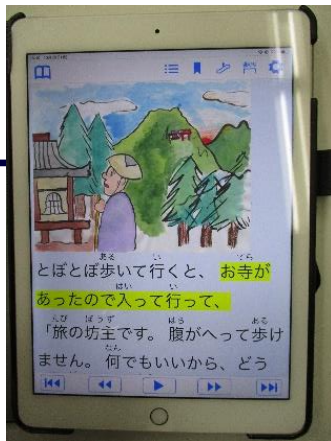 とぼとぼ歩いて行くと、お寺が
あったので入って行って、
「旅の坊主です。腹がへって歩け
ません。何でもいいから、どう